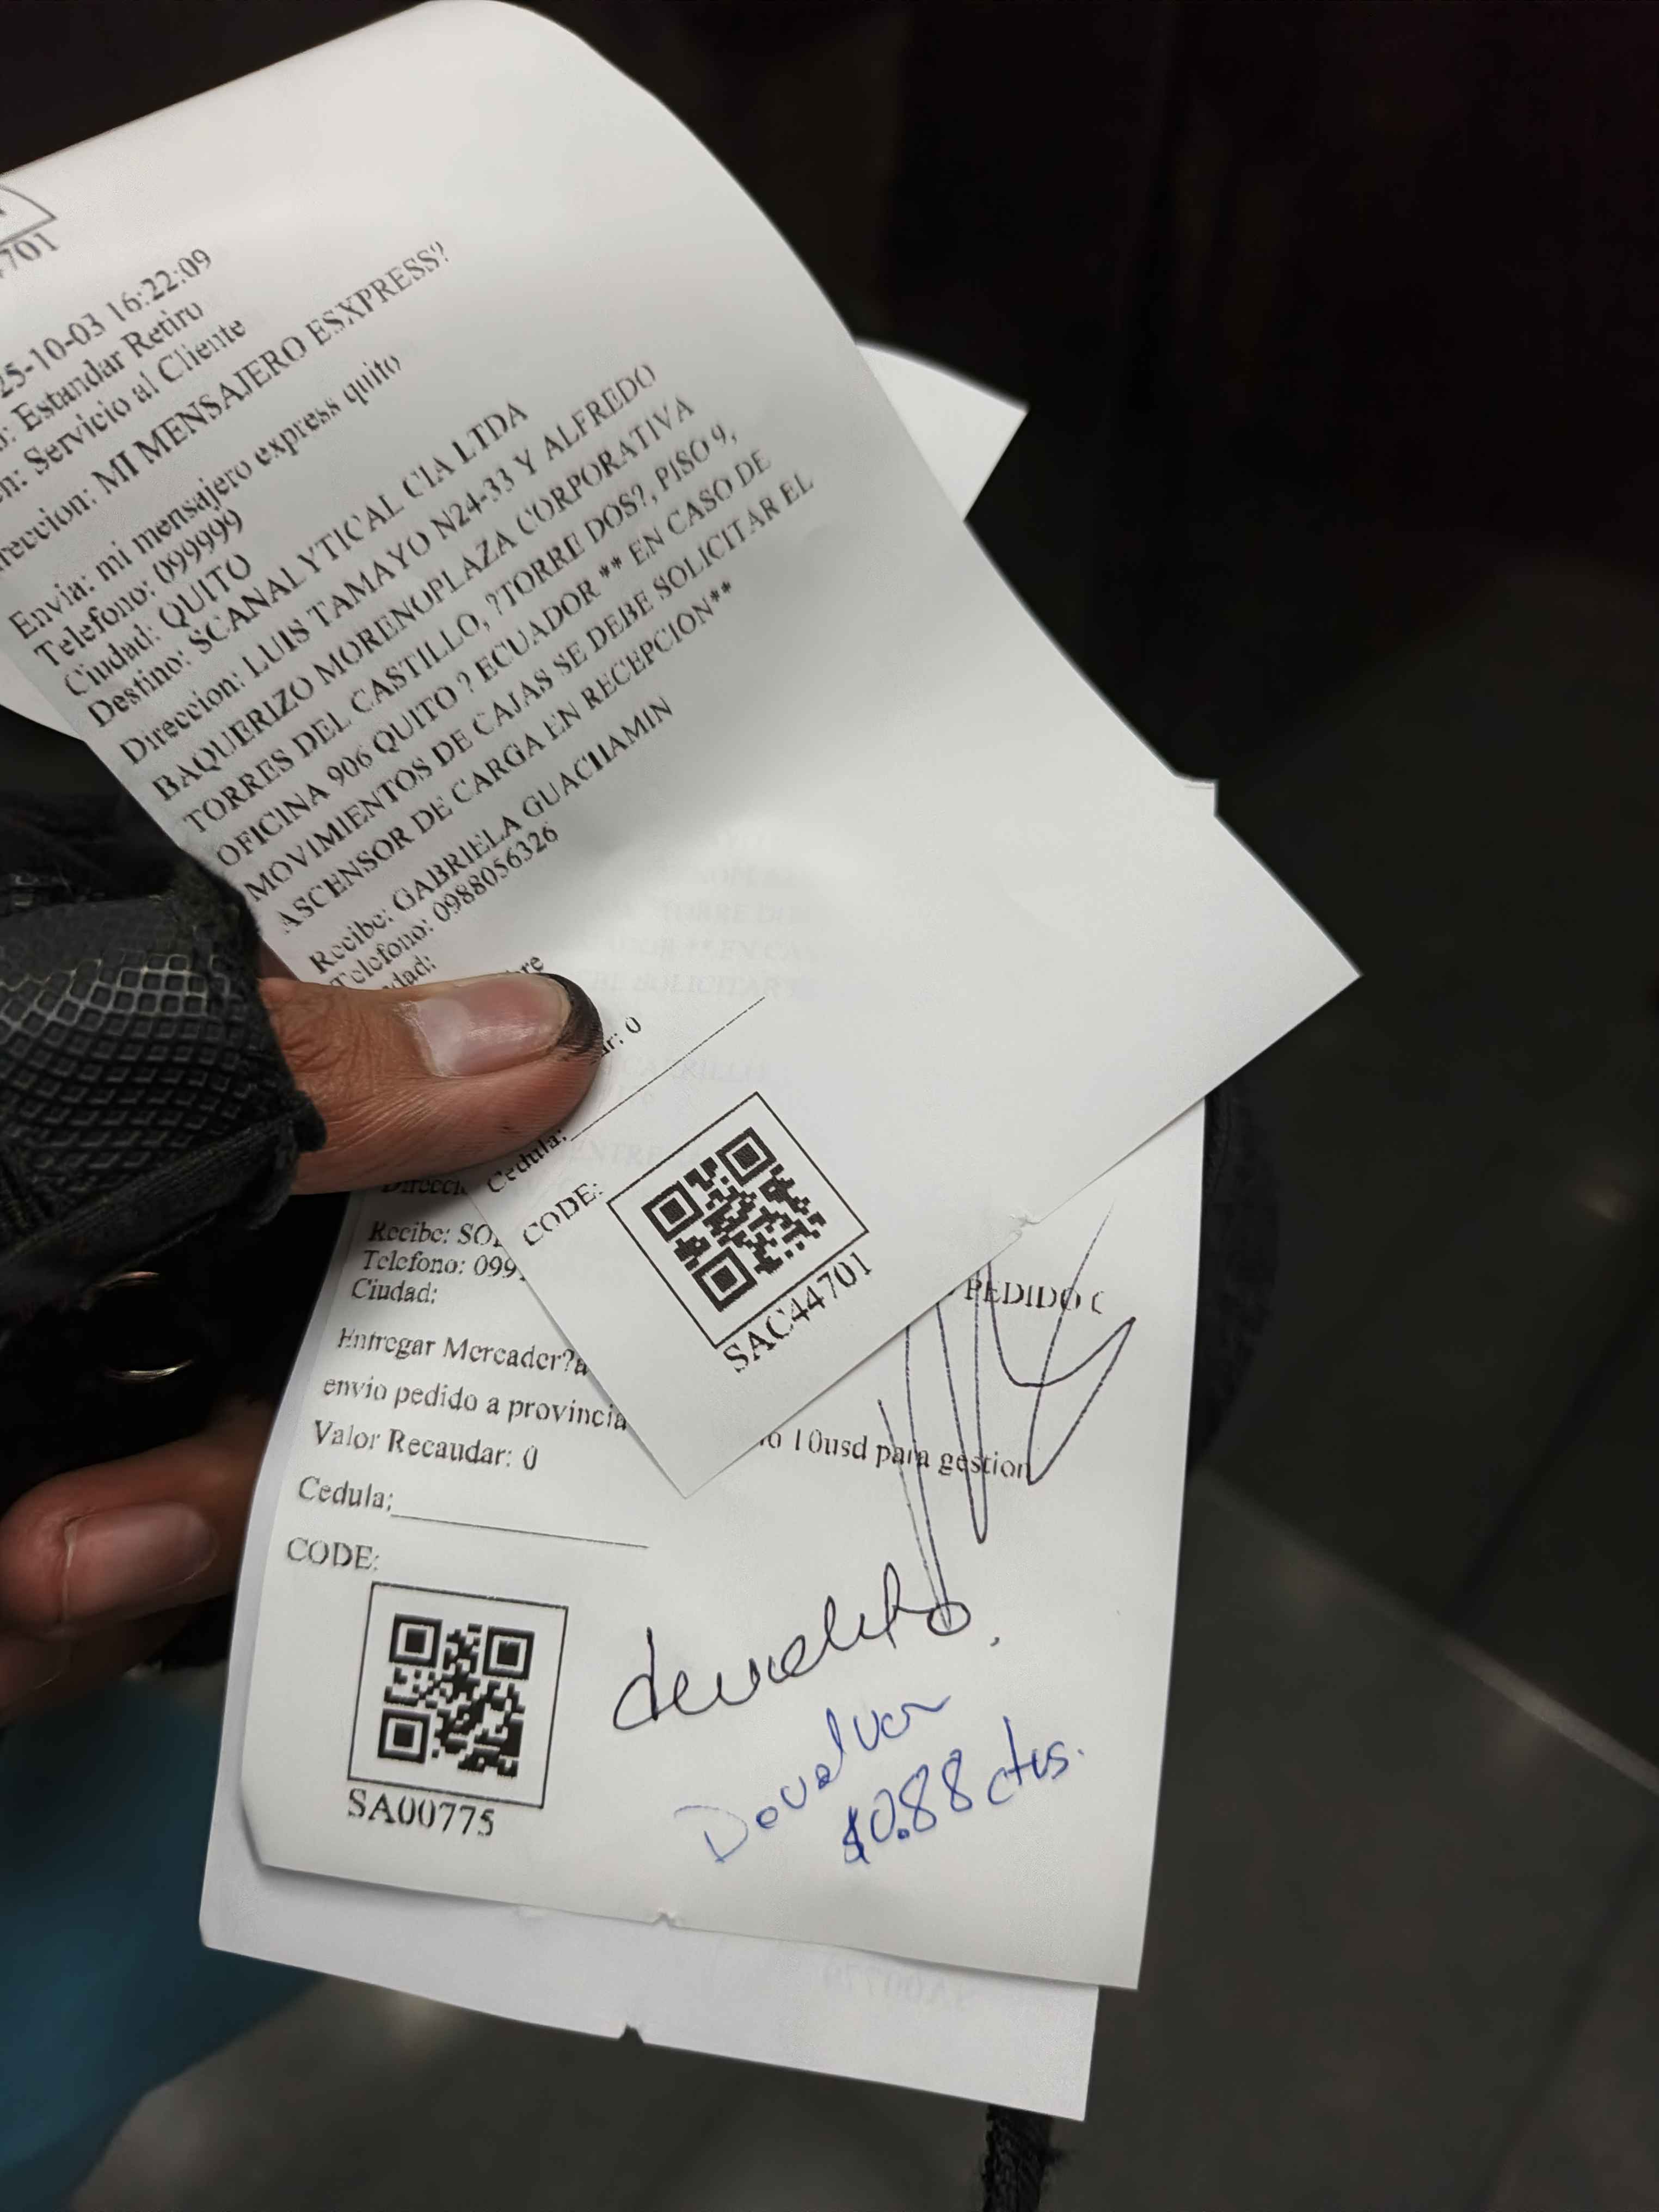 701
25-10-03 16:22:09
: Estandar Retiro
n: Servicio al Cliente
reccion: MI MENSAJERO ESXPRESS?
Envia: mi mensajero express quito
Telefono: 099999
Ciudad: QUITO
Destino: SCANALYTICAL CIA LTDA
Direccion: LUIS TAMAYO N24-33 Y ALFREDO
BAQUERIZO MORENOPLAZA CORPORATIVA
TORRES DEL CASTILLO, ?TORRE DOS?, PISO 9,
OFICINA 906 QUITO ? ECUADOR ** EN CASO DE
MOVIMIENTOS DE CAJAS SE DEBE SOLICITAR EL
ASCENSOR DE CARGA EN RECEPCION**
Recibe: GABRIELA GUACHAMIN
Telefono: 0988056326
dad:
bre
ar: 0
Cedula:
CODE:
SAC44701
Direcci
Recibe: SO
Telefono: 099
Ciudad:
PEDIDO
Entregar Mercader?a
envio pedido a provincia
10usd para gestion
Valor Recaudar: 0
Cedula:
CODE:
SA00775
devuelto.
Devolver
$0.88 ctvs.